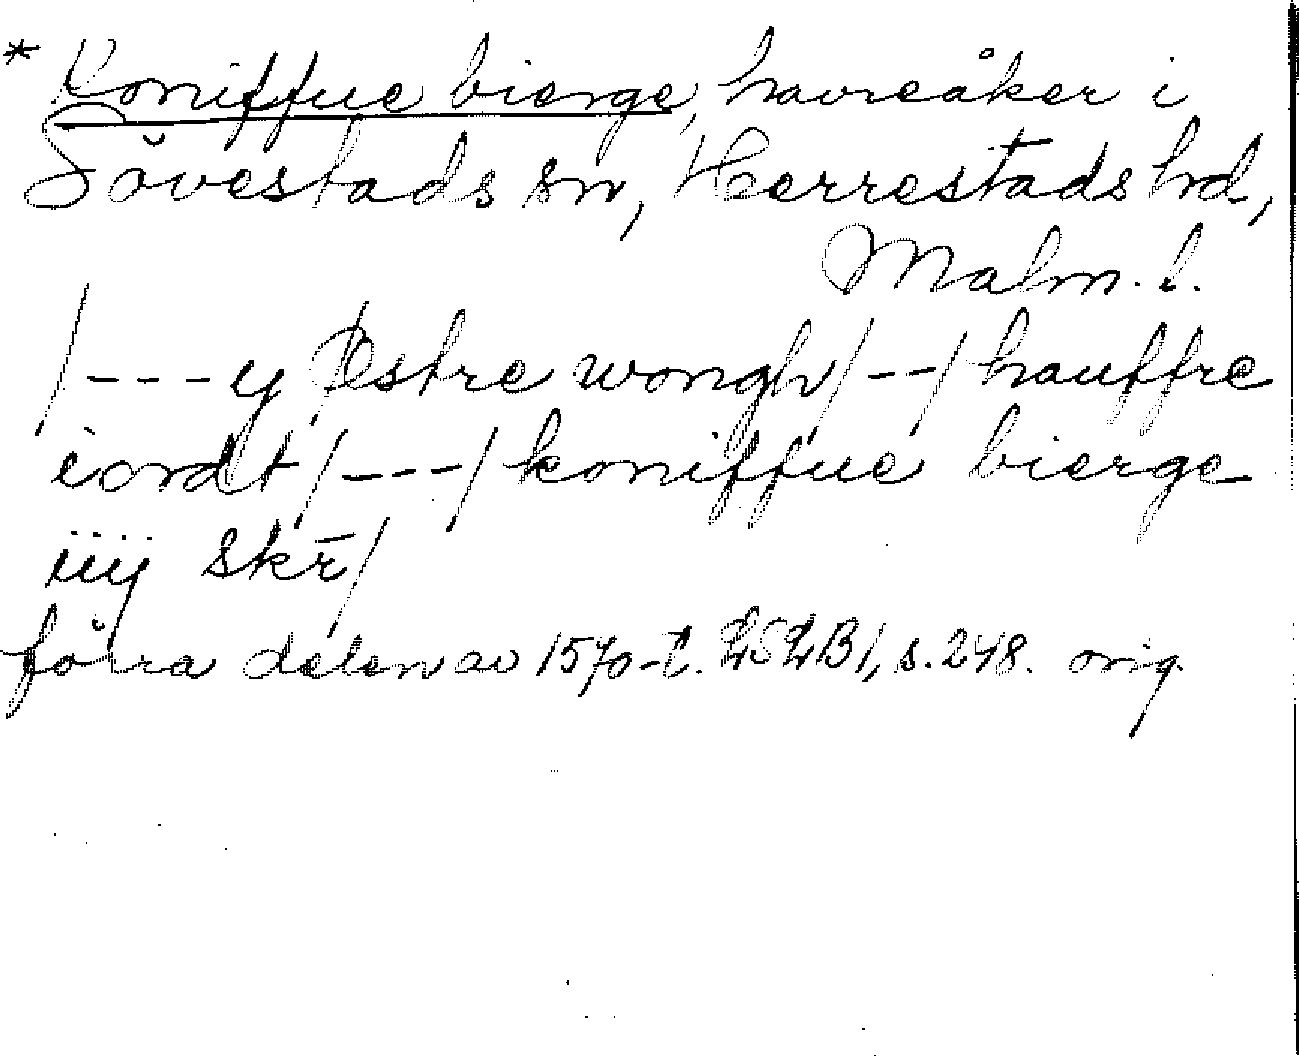 * Koniffue bierge, havreåker i
Sövestads sn, Herrestads hd,
Malm. l.
/---y Østre wongh/--/hauffre
iordt/---/koniffue bierge
iiij skr̄/
förra delen av 1570-t. LSLB1, s. 248. orig.